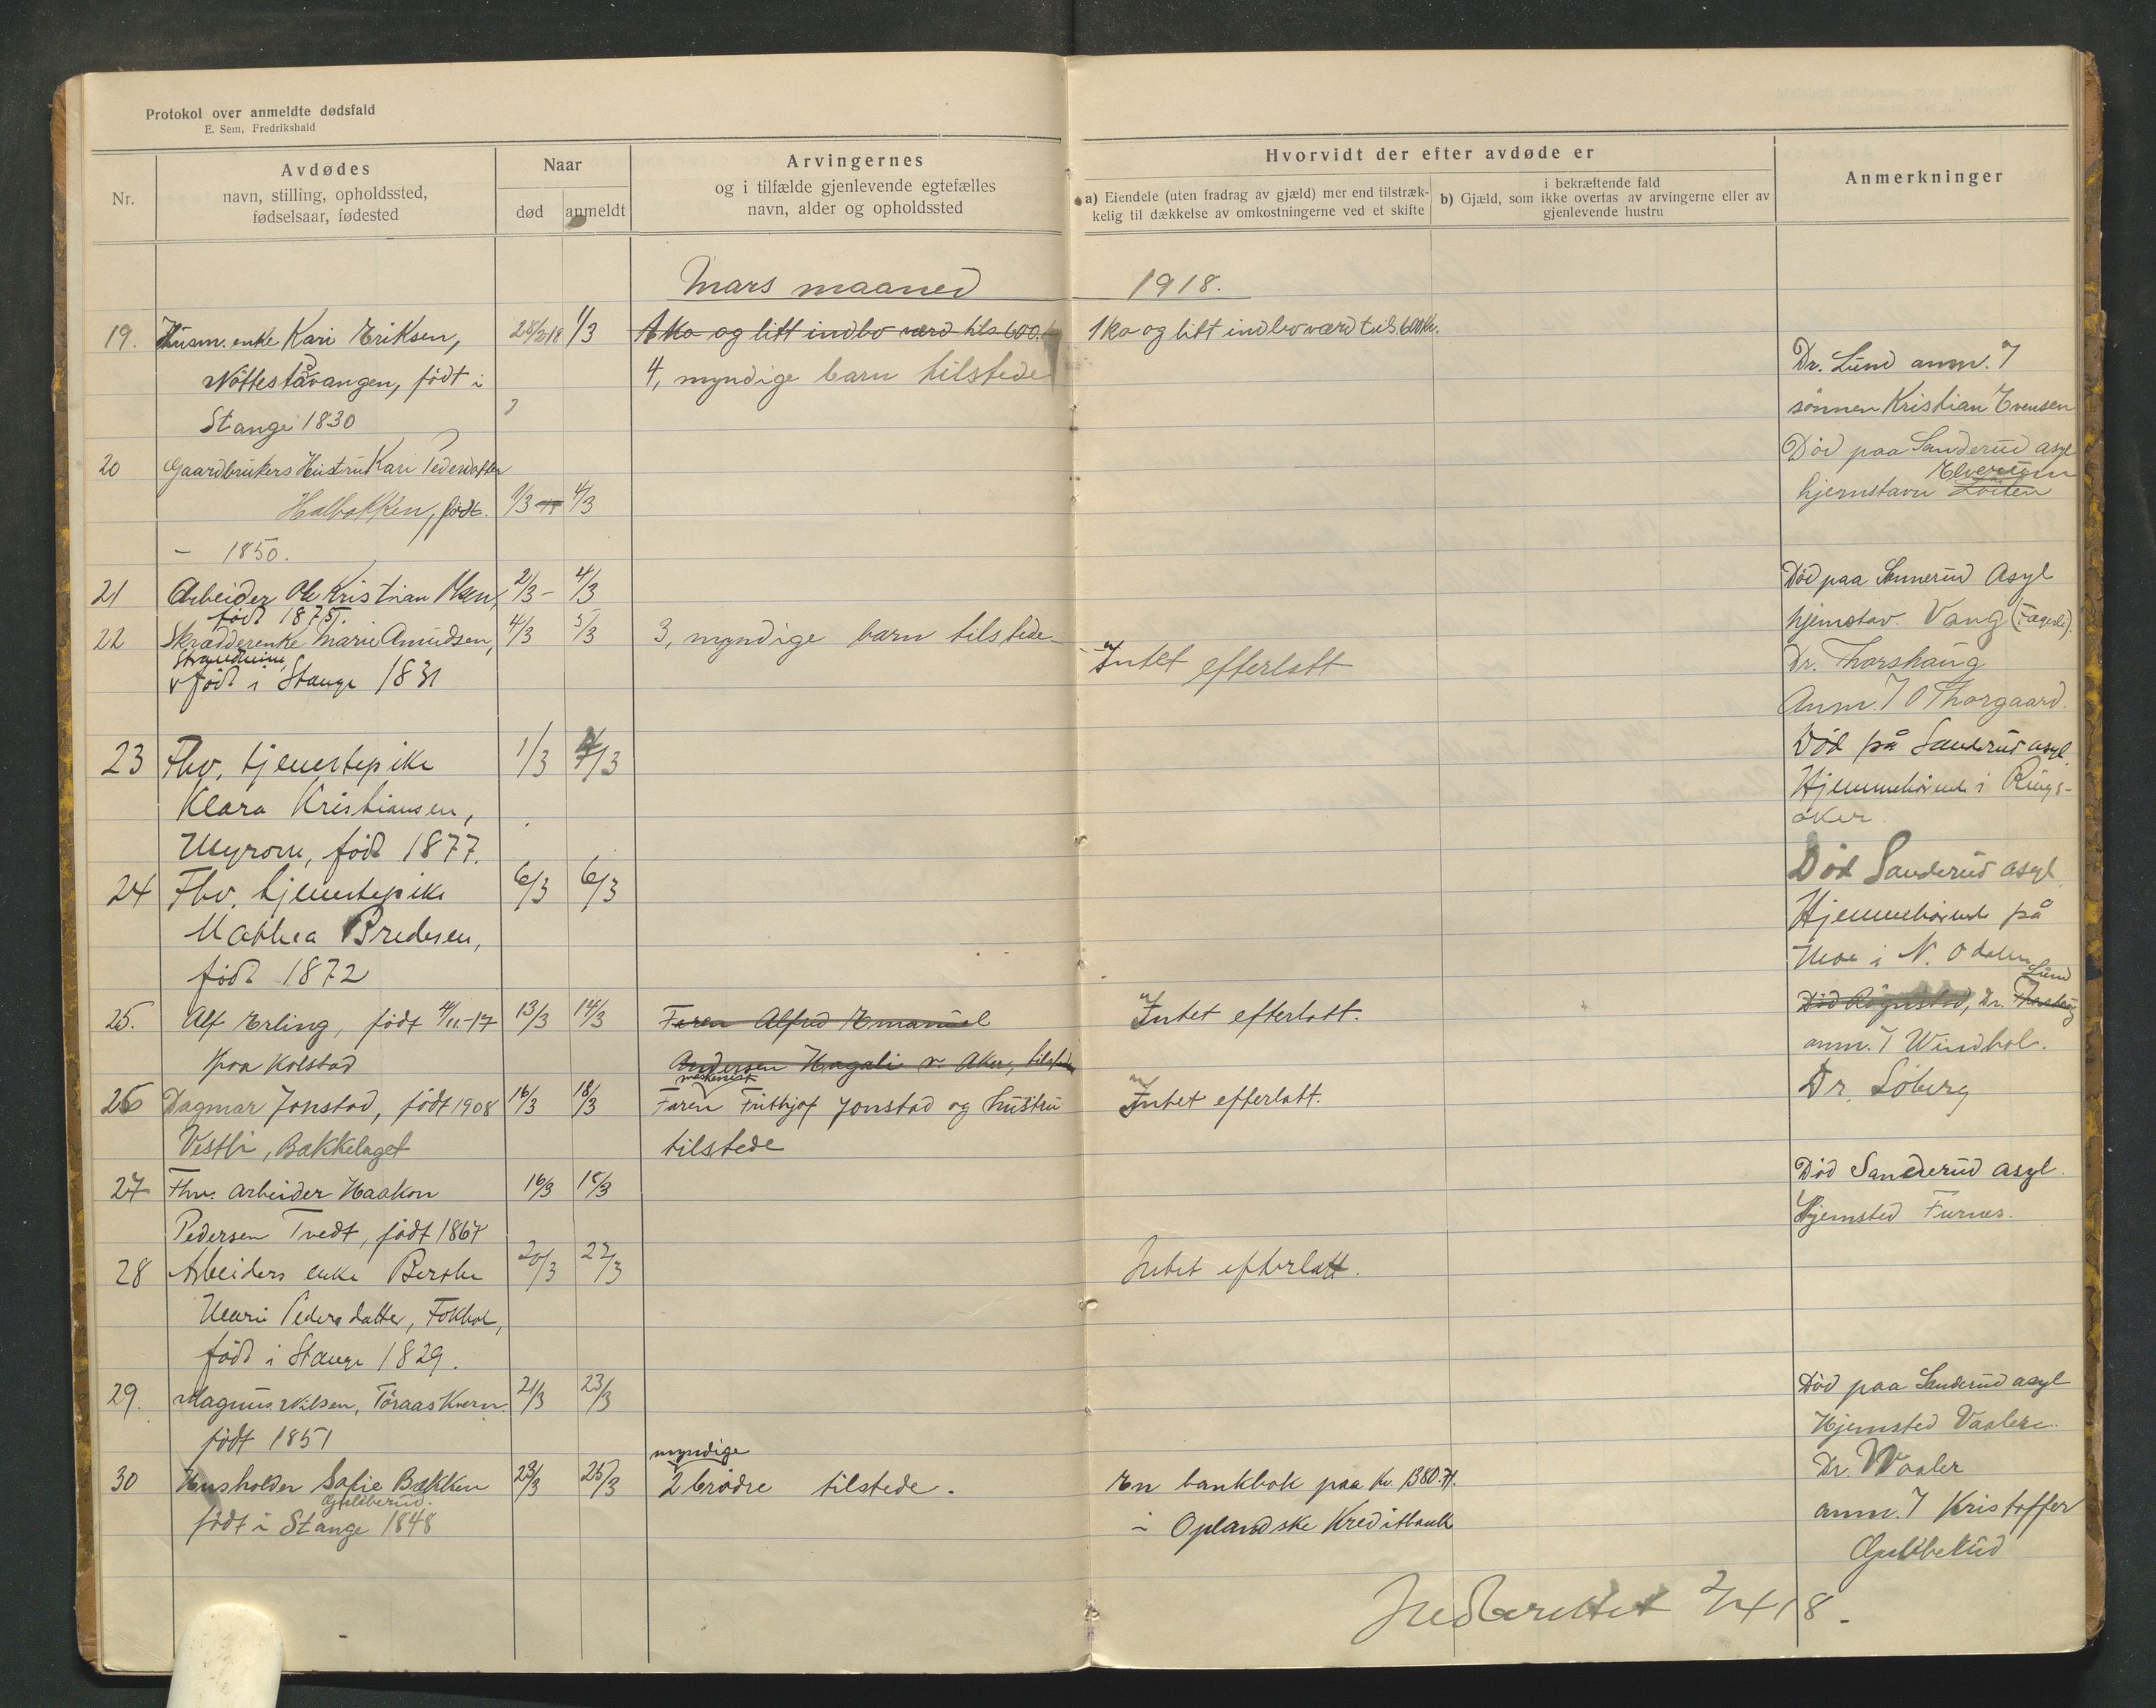 Protokol over anmeldte dødsfald
E. Sem, Fredrikshald
Nr.
Avdødes
navn, stilling, opholdssted,
fødselsaar, fødested
Naar
død
anmeldt
Arvingernes
og i tilfælde gjenlevende egtefælles
navn, alder og opholdssted
Hvorvidt der efter avdøde er
a) Eiendele (uten fradrag av gjæld) mer end tilstræk-
kelig til dækkelse av omkostningerne ved et skifte
i bekræftende fald
b) Gjæld, som ikke overtas av arvingerne eller av
gjenlevende hustru
Anmerkninger
Mars maaned 1918.
19. Husm. enke Kari Eriksen, 28/2 18 1/3 1 ko og litt indbo værd tils. 600 1 ko og litt indbo værd tils. 600 Kr.
Nøtteståvangen, født i 4, myndige barn tilstede Dr. Lund anm. 7
Stange 1830 sønnen Kristian Evensen
20 Gaardbrukers Hustru Kari Pedersdatter Død paa Sanderud asyl
Halbakken, født 1/3 4/3 hjemstavn Løiten Elverum
- 1850.
21 Arbeider Ole Kristian Olsen, 2/3 - 4/3 Død paa Sannerud Asyl
født 1875. hjemstav. Vang
22 Skrædderenke Marie Amundsen, 4/3 5/3 3, myndige barn tilstede Intet efterlatt Dr. Thorshaug
Strandheim,
født i Stange 1831 Anm. 7 O Thorgaard.
23 Fhv. tjenestepike 1/3 4/3 Død på Sanderud asyl.
Klara Kristiansen, Hjemmehørende i Rings-
Myrom, født 1877. aker.
24 Fhv. tjenestepike 6/3 6/3 Død Sanderud asyl.
Mathea Bredesen, Hjemmehørende på
født 1872 Moe i N. Odalen
25. Alf Erling, født 4/11-17 13/3 14/3 Faren Alfred Emanuel Intet efterlatt. Død Rognstad, Dr. Thorshaug Lund
paa Kolstad Andersen Hagali v. Aker, tilstede anm. 7 Windhol.
26 Dagmar Jonstad, født 1908 16/3 18/3 Faren maskinist Frithjof Jonstad og hustru Intet efterlatt. Dr. Löberg
Vestli, Bækkelaget tilstede
27 Fhv. arbeider Haakon 16/3 18/3 Død Sanderud asyl.
Pedersen Tvedt, født 1867 Hjemsted Furnes.
28 Arbeiders enke Berthe 20/3 22/3 Intet efterlatt.
Marie Pedersdatter, Fokhol,
født i Stange 1829.
29. Magnus Nilsen, Töraaskvern. 21/3 23/3 Død paa Sanderud asyl
født 1851 Hjemsted Vaalere.
30 Husholder Sofie Bækken 23/3 25/3 2 myndige brødre tilstede. En bankbok paa kr. 1380.71. Dr. Waaler
Gulliberud.
født i Stange 1848 i Oplandske Kreditbank anm. 7 Kristoffer
Gulliberud
Indberettet 2/4 18.